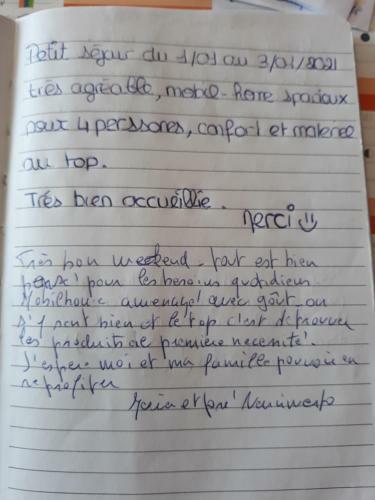 Petit séjour du 1/01 au 3/01/2021
très agréable, mobil-home spacieux
pour 4 perssones, confort et materiel
au top.
Trés bien accueillie.
Merci
Très bon weekend. tout est bien
pensé pour les besoins quotidiens
Mobilhome amenagé avec goût on
s'y sent bien et le top c'est de trouver
les produits de première necessité.
J'espere moi et ma famille pouvoir en
reprofiter
et José